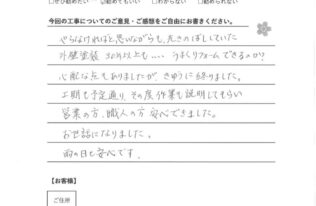 □ぜひ勧めたい ☑勧めてもいい □わからない □勧めない
今回の工事についてのご意見・ご感想をご自由にお書きください。
やらなければと思いながらも、先きのばししていた
外壁塗装 30年以上も‥‥ うまくリフォームできるのか?
心配な点もありましたが、きゆうに終りました。
工期も予定通り、その度作業も説明してもらい
営業の方、職人の方 安心できました。
お世話になりました。
雨の日も安心です。
【お客様】
ご住所